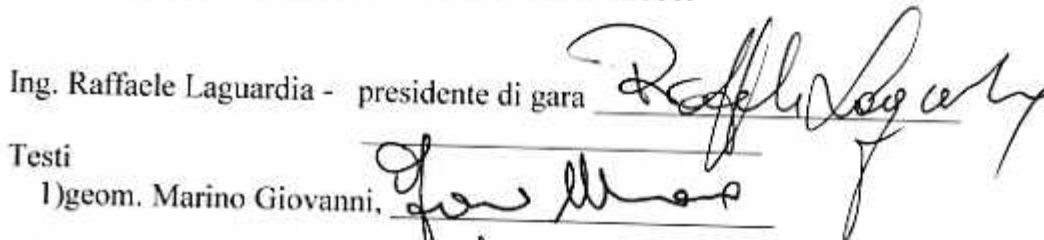 Ing. Raffaele Laguardia - presidente di gara Raffaele Laguardia
Testi
1)geom. Marino Giovanni,